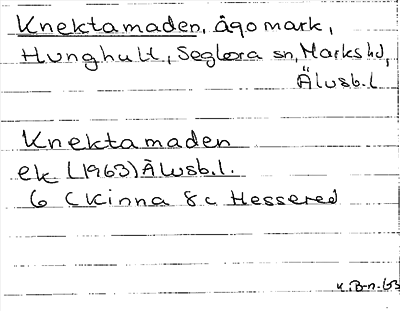 Knektamaden, ägomark,
Hunghult, Seglora sn, Marks hd,
Älvsb. l
Knektamaden
ek (1963) Älvsb. l.
6 C Kinna 8 c Hessered
K. B-n. 63